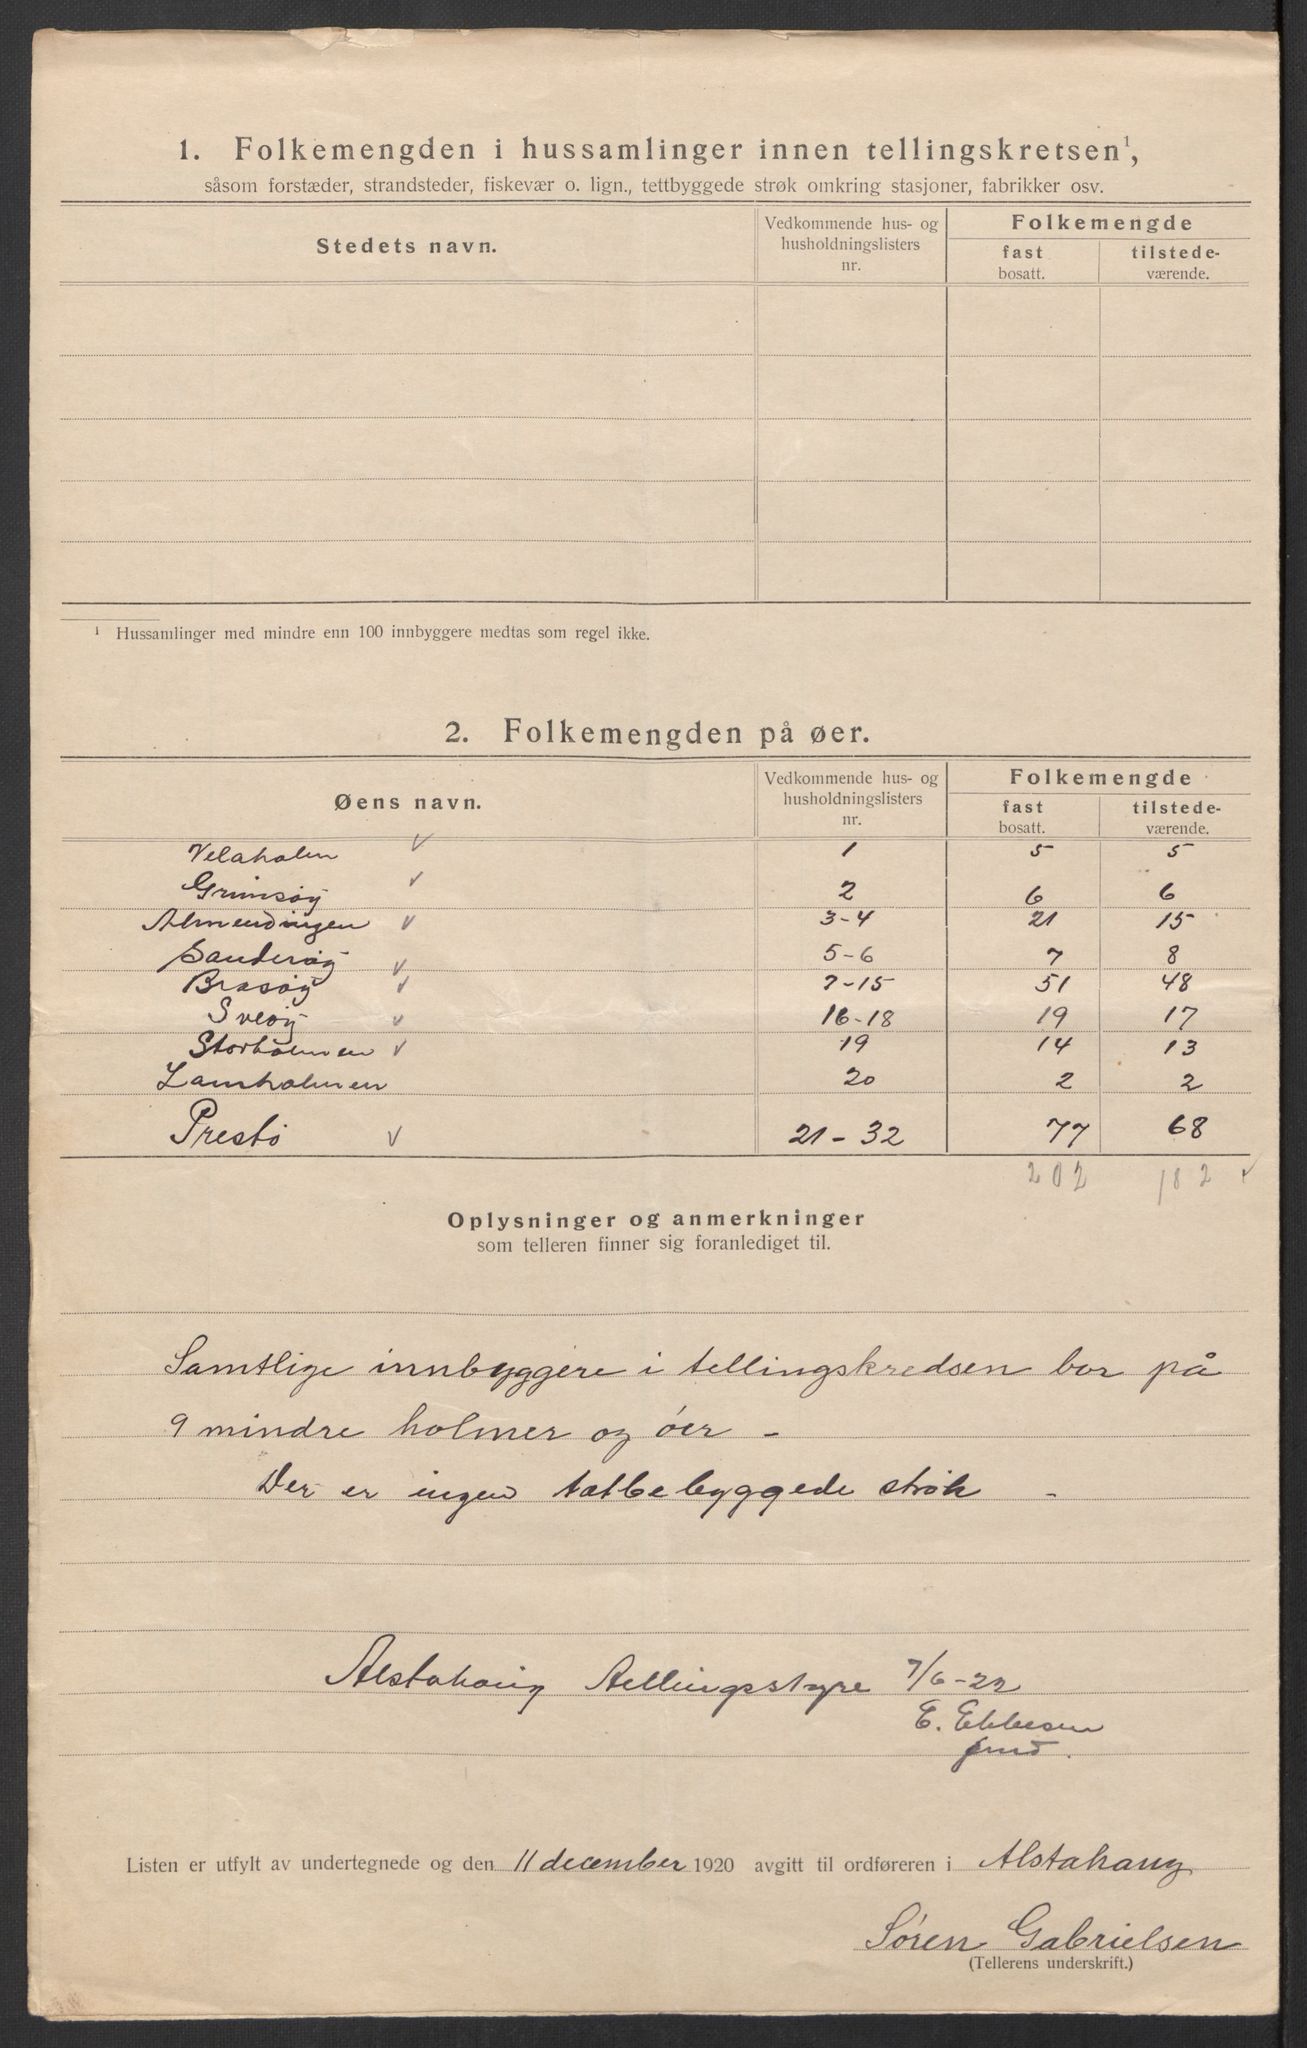 1. Folkemengden i hussamlinger innen tellingskretsen¹,
såsom forstæder, strandsteder, fiskevær o. lign., tettbyggede strøk omkring stasjoner, fabrikker osv.
Stedets navn. Vedkommende hus- og husholdningslisters nr. Folkemengde
fast bosatt. tilstede-værende.
¹ Hussamlinger med mindre enn 100 innbyggere medtas som regel ikke.
2. Folkemengden på øer.
Øens navn. Vedkommende hus- og husholdningslisters nr. Folkemengde
fast bosatt. tilstede-værende.
Velaholm ✓ 1 5 5
Grimsøy ✓ 2 6 6
Almendingen ✓ 3-4 21 15
Sandsøy ✓ 5-6 7 8
Brasøy ✓ 7-15 51 48
Sveøy ✓ 16-18 19 17
Storholmen ✓ 19 14 13
Lamholmen 20 2 2
Prestø ✓ 21-32 77 68
202 182 ✓
Oplysninger og anmerkninger
som telleren finner sig foranlediget til.
Samtlige innbyggere i tellingskredsen bor på
9 mindre holmer og øer -
Der er ingen tætbebyggede strøk -
Alstahaug Tellingsstyre 7/6-22
E. Ebbesen
Listen er utfylt av undertegnede og den 11 december 1920 avgitt til ordføreren i Alstahaug
Søren Gabrielsen
(Tellerens underskrift.)